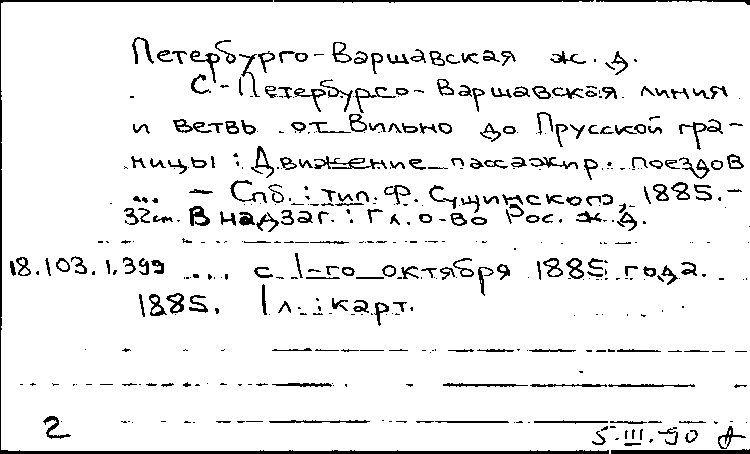 Петербурго-Варшавская ж. д.
С-Петербурго-Варшавская линия
и ветвь от Вильно до Прусской гра-
ницы : Движение пассажир. поездов
... – Спб. : тип. Ф. Сущинского, 1885. –
32 см. В надзаг. : Гл. о-во Рос. ж. д.
18.103.1.399 ... с 1-го октября 1885 года.
1885. 1 л. : карт.
2
5.III.-90